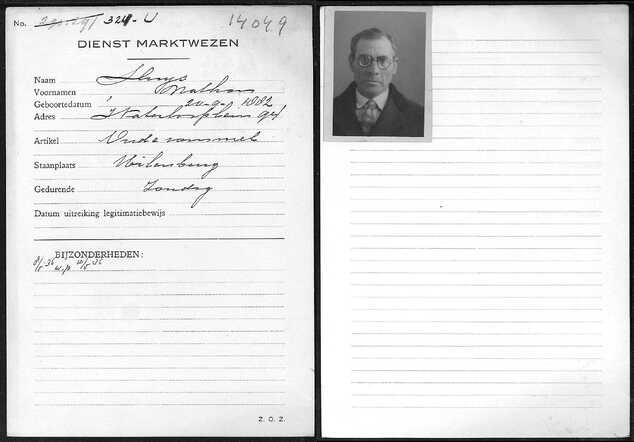 No. 324-U 14049
DIENST MARKTWEZEN
Naam Sluys
Voornamen Nathan
Geboortedatum 20-9-1882
Adres Waterlooplein 94
Artikel Oude rommel
Staanplaats Uilenburg
Gedurende Zondag
Datum uitreiking legitimatiebewijs
BIJZONDERHEDEN:
Z. O. Z.